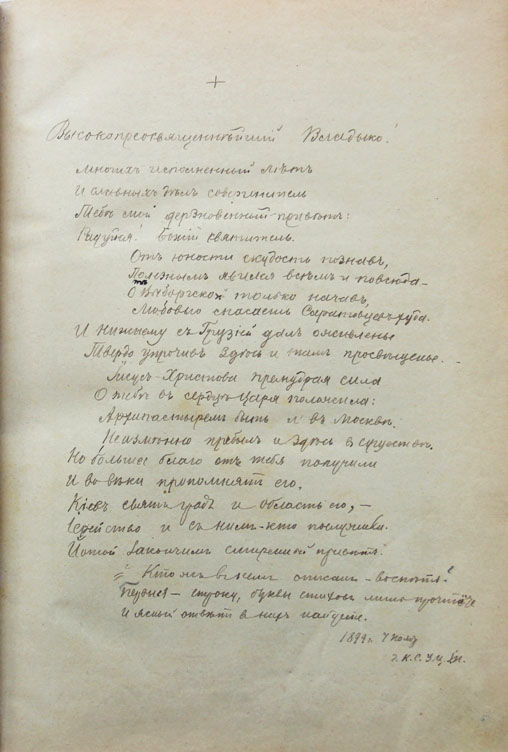 +
Высокопреосвященнѣйшій Владыко!
Многихъ исполненный лѣтъ
И славныхъ дѣлъ совершитель
Тебѣ мой дерзновенный привѣтъ:
Радуйся! Божій святитель.
Отъ юности скудость познавъ,
Полезнымъ явился всѣмъ и повсюда –
О Выборгской только начавъ,
Любовью спасаетъ Саратовцевъ худа.
И Нижнему съ Грузіей далъ оживленье
Твердо упрочивъ здѣсь и тамъ просвѣщенье.
Іисусъ-Христова премудрая сила
О тебѣ въ сердцѣ Царя положила:
Архипастыремъ быть и въ Москвѣ.
Неизмѣнно пребылъ и здѣсь въ существѣ.
Но большее благо отъ тебя получили
И во вѣки пропомнятъ его.
Кіевъ святъ градъ и область его, –
и съ нимъ – кто
Йотой закончимъ смиренный привѣтъ.
= Кто жъ всѣмъ описанъ – воспѣтъ?
– строку, буквы стиховъ лишь прочтёте
И ясный отвѣтъ въ нихъ найдете.
1899 г. 7 Ноя